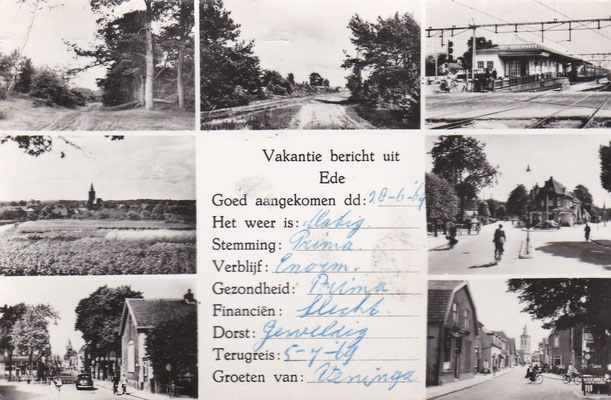 Vakantie bericht uit
Ede
Goed aangekomen dd: 28-6-'69
Het weer is: Matig.
Stemming: Prima
Verblijf: Enorm.
Gezondheid: Prima
Financiën: Slecht
Dorst: Geweldig
Terugreis: 5-7-'69
Groeten van: Vaninga